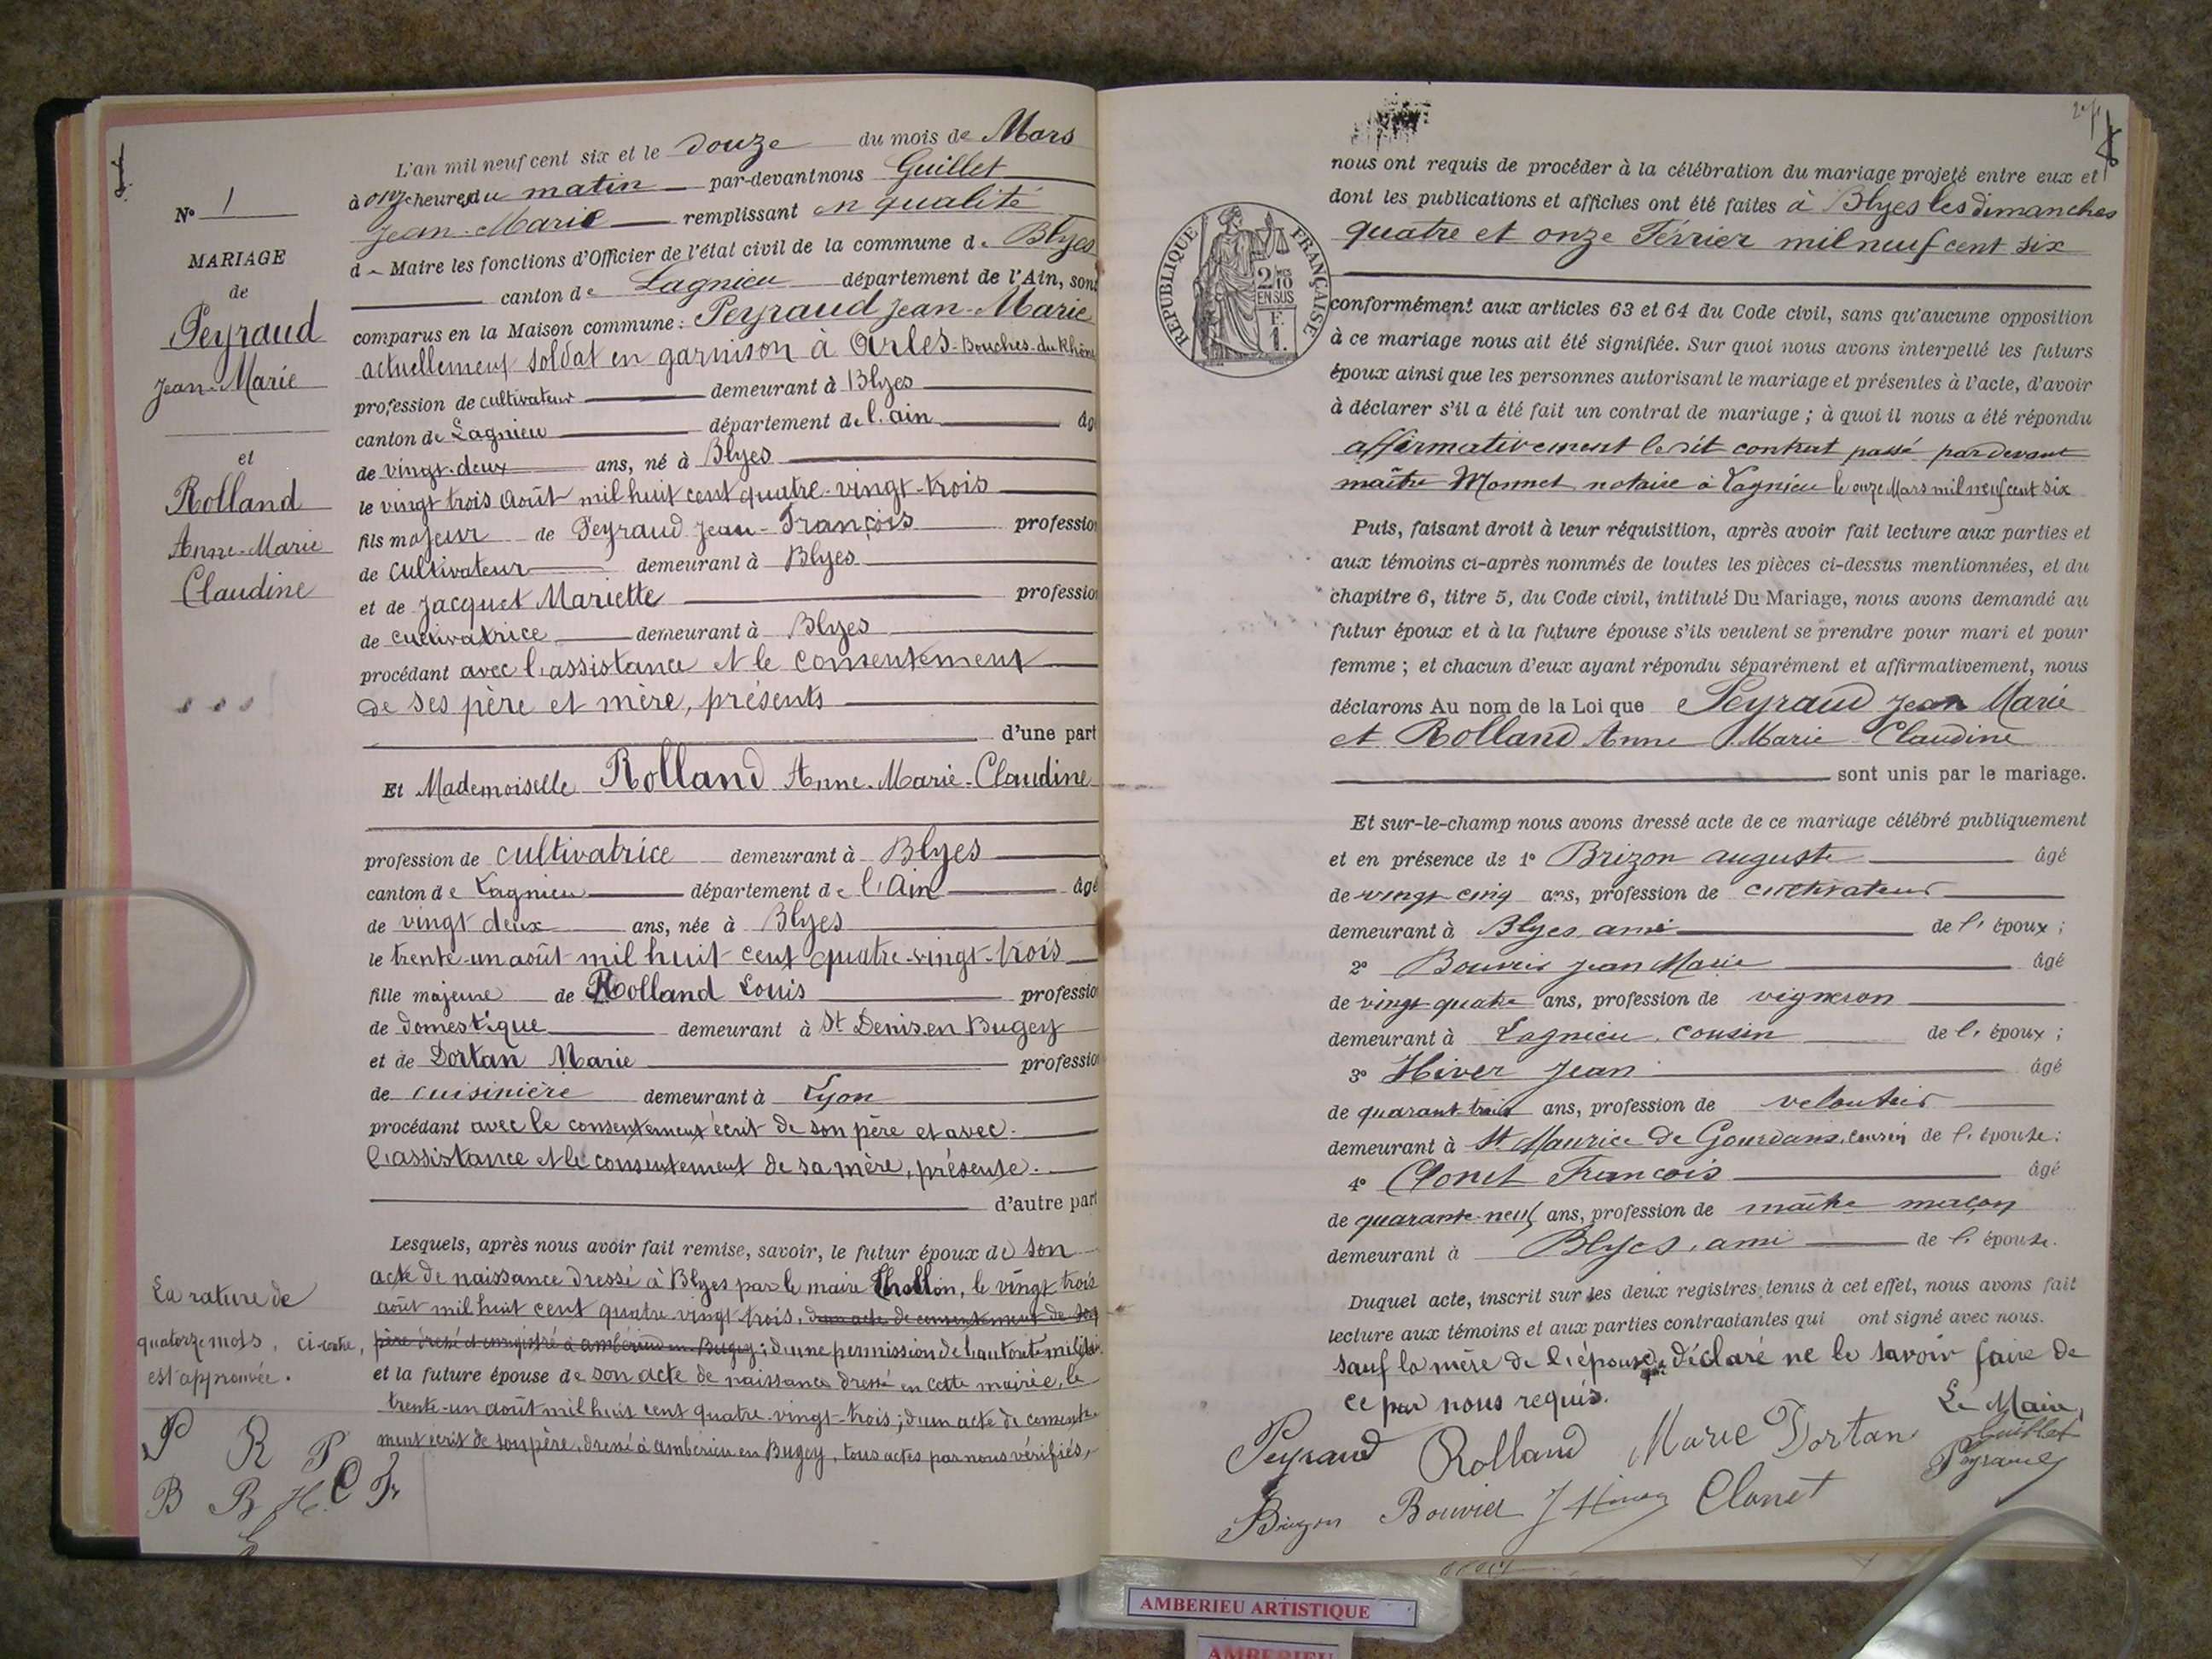 L'an mil neuf cent six et le douze du mois de Mars
à onze heures du matin par-devant nous Guillet
Jean-Marie remplissant en qualité
de Maire les fonctions d'Officier de l'état civil de la commune de Blyes
canton de Lagnieu département de l'Ain, sont
comparus en la Maison commune: Peyraud Jean-Marie
actuellement soldat en garnison à Arles-Bouches-du-Rhône
profession de cultivateur demeurant à Blyes
canton de Lagnieu département de l'ain âg
de vingt-deux ans, né à Blyes
le vingt trois Août mil huit cent quatre-vingt-trois
fils majeur de Peyraud Jean-François professio
de cultivateur demeurant à Blyes
et de Jacquet Mariette professio
de cultivatrice demeurant à Blyes
procédant avec l'assistance et le consentement
de ses père et mère, présents
d'une part
Et Mademoiselle Rolland Anne-Marie-Claudine
profession de cultivatrice demeurant à Blyes
canton de Lagnieu département de l'Ain âgé
de vingt deux ans, née à Blyes
le trente-un août mil huit cent quatre-vingt-trois
fille majeure de Rolland Louis professio
de domestique demeurant à St Denis en Bugey
et de Dortan Marie professio
de cuisinière demeurant à Lyon
procédant avec le consentement écrit de son père et avec
l'assistance et le consentement de sa mère, présente.
d'autre part
Lesquels, après nous avoir fait remise, savoir, le futur époux de son
acte de naissance dressé à Blyes par le maire Thollon, le vingt trois
août mil huit cent quatre vingt trois, d'un acte de consentement de son
père dressé et enregistré à ambérieu en Bugey; d'une permission de l'autorité militaire
et la future épouse de son acte de naissance dressé en cette mairie, le
trente-un août mil huit cent quatre-vingt-trois; d'un acte de consente-
ment écrit de son père, dressé à ambérieu en Bugey, tous actes par nous vérifiés,
N° 1
MARIAGE
de
Peyraud
Jean-Marie
et
Rolland
Anne-Marie
Claudine
La rature de
quatorze mots, ci-contre,
est approuvée.
P R P
B B H. C Fr
G
nous ont requis de procéder à la célébration du mariage projeté entre eux et
dont les publications et affiches ont été faites à Blyes les dimanches
quatre et onze Février mil neuf cent six
RÉPUBLIQUE FRANÇAISE
2/10
EN SUS
F.
1.
conformément aux articles 63 et 64 du Code civil, sans qu'aucune opposition
à ce mariage nous ait été signifiée. Sur quoi nous avons interpellé les futurs
époux ainsi que les personnes autorisant le mariage et présentes à l'acte, d'avoir
à déclarer s'il a été fait un contrat de mariage; à quoi il nous a été répondu
affirmativement le dit contrat passé par devant
maître Monnet notaire à Lagnieu le onze Mars mil neuf cent six
Puis, faisant droit à leur réquisition, après avoir fait lecture aux parties et
aux témoins ci-après nommés de toutes les pièces ci-dessus mentionnées, et du
chapitre 6, titre 5, du Code civil, intitulé Du Mariage, nous avons demandé au
futur époux et à la future épouse s'ils veulent se prendre pour mari et pour
femme; et chacun d'eux ayant répondu séparément et affirmativement, nous
déclarons Au nom de la Loi que Peyraud Jean Marie
et Rolland Anne Marie Claudine
sont unis par le mariage.
Et sur-le-champ nous avons dressé acte de ce mariage célébré publiquement
et en présence de 1° Brizon auguste âgé
de vingt cinq ans, profession de cultivateur
demeurant à Blyes, ami de l'époux;
2° Bouvier Jean Marie âgé
de vingt quatre ans, profession de vigneron
demeurant à Lagnieu, cousin de l'époux;
3° Hiver Jean âgé
de quarant-trois ans, profession de veloutier
demeurant à St Maurice de Gourdans, cousin de l'épouse;
4° Clonet Francois âgé
de quarante-neuf ans, profession de maître maçon
demeurant à Blyes, ami de l'épouse.
Duquel acte, inscrit sur les deux registres tenus à cet effet, nous avons fait
lecture aux témoins et aux parties contractantes qui ont signé avec nous.
sauf la mère de l'épouse qui a déclaré ne le savoir faire de
ce par nous requis.
Le Maire,
Guillet
Peyraud Rolland Marie Dortan Peyraud
Brizon Bouvier J Hiver Clonet
AMBERIEU ARTISTIQUE
AMBERIEU